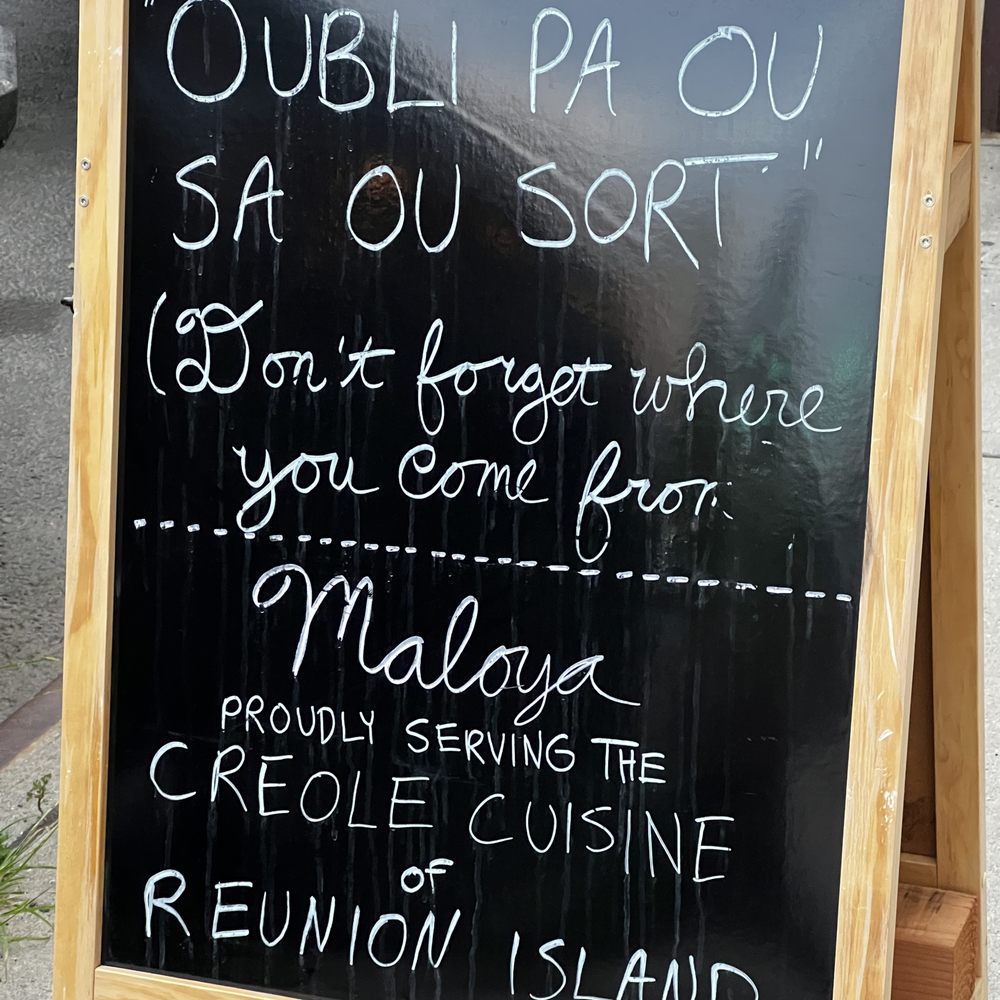 "OUBLI PA OU
SA OU SORT"
(Don't forget where
you come from
Maloya
PROUDLY SERVING THE
CREOLE CUISINE
OF
REUNION ISLAND